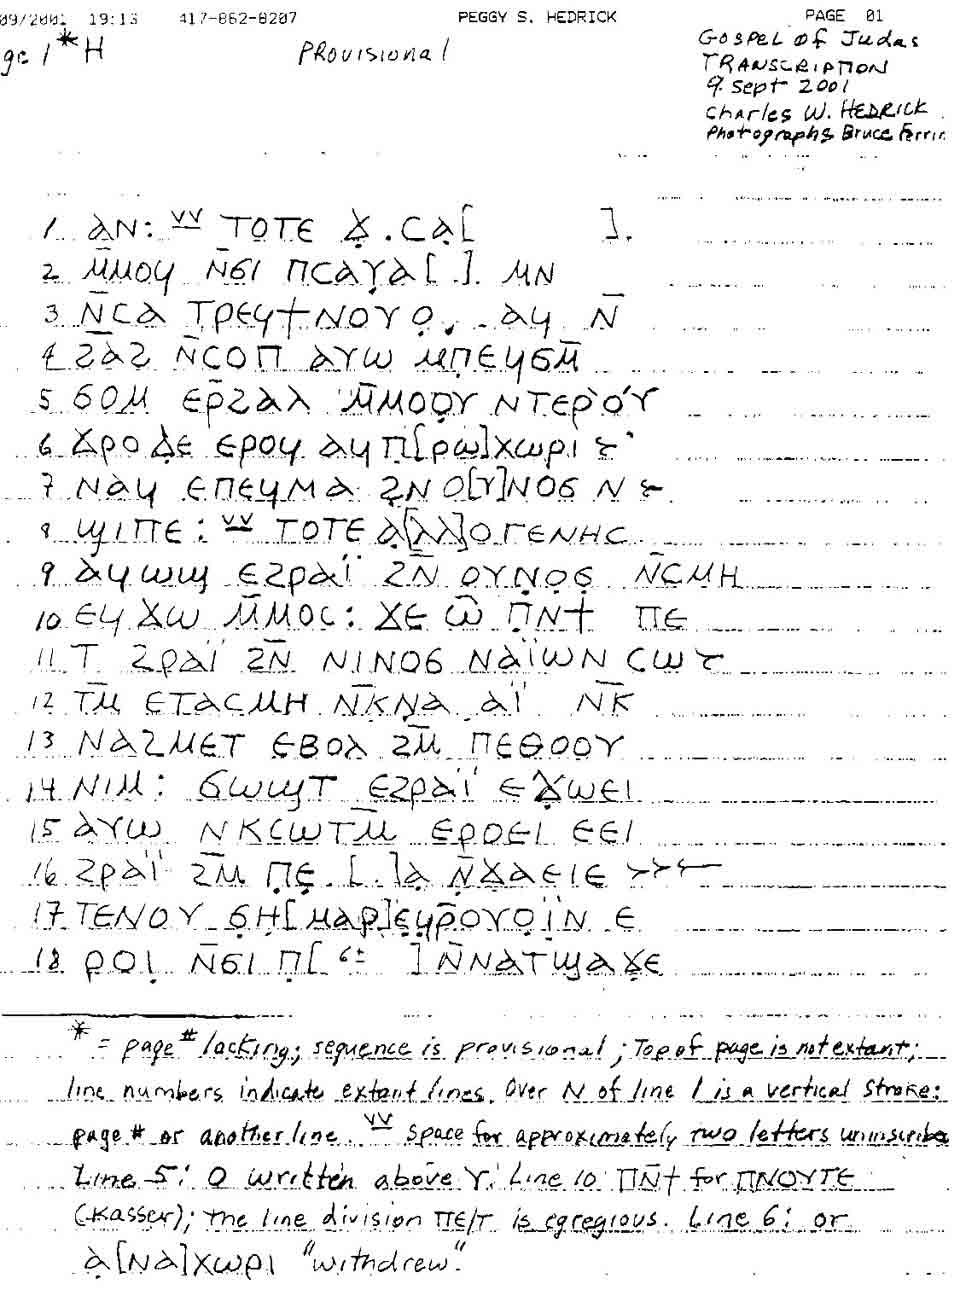 09/2001 19:13 417-862-8207 PEGGY S. HEDRICK PAGE 01
ge 1 *H PROVISIONAL GOSPEL OF Judas
TRANSCRIPTION
9. Sept 2001
Charles W. HEDRICK
Photographs Bruce Ferrin
1 ⲁⲛ: vv ⲧⲟⲧⲉ ϫ̣.ⲥⲁ̣[ ].
2 ⲙ̄ⲙⲟϥ ⲛ̄ϭⲓ ⲡⲥⲁⲧ̣ⲁ̣[.] ⲙⲛ
3 ⲛ̄ⲥⲁ ⲧⲣⲉϥϯⲛⲟⲩⲟ̣. ⲁϥ ⲛ̄
4 ϩⲁϩ ⲛ̄ⲥⲟⲡ ⲁⲩⲱ ⲙⲡⲉϥϭⲙ̄
5 ϭⲟⲙ ⲉⲣ̄ϩⲁⲗ ⲙ̄ⲙⲟϥ̣ ⲛⲧⲉⲣⲟⲩ
6 ϫⲣⲟ ⲇ̣ⲉ ⲉⲣⲟϥ ⲁϥⲡ̣[ⲣⲱ]ⲭⲱⲣⲓ
7 ⲛⲁϥ ⲉⲡⲉϥⲙⲁ ϩⲛ ⲟ[ⲩ]ⲛⲟϭ ⲛ
8 ϣⲓⲡⲉ: vv ⲧⲟⲧⲉ ⲁ̣[ⲗⲗ]ⲟⲅⲉⲛⲏⲥ
9 ⲁϥⲱϣ ⲉϩⲣⲁⲓ̈ ϩⲛ̄ ⲟⲩⲛ̣ⲟ̣ϭ̣ ⲛ̄ⲥⲙⲏ
10 ⲉϥ ϫⲱ ⲙ̄ⲙⲟⲥ: ϫⲉ ⲱ̂ ⲡ̣ⲛ̄ϯ ⲡⲉ
11 ⲧ ϩⲣⲁⲓ̈ ϩⲛ̄ ⲛⲓⲛⲟϭ ⲛⲁⲓ̈ⲱⲛ ⲥⲱ
12 ⲧⲙ̄ ⲉⲧⲁⲥⲙⲏ ⲛ̄ⲕ̣ⲛⲁ ⲁⲓ̈ ⲛ̄ⲕ
13 ⲛⲁϩⲙⲉⲧ ⲉⲃⲟⲗ ϩⲙ̄ ⲡⲉⲑⲟⲟⲩ
14 ⲛⲓⲙ: ϭⲱϣⲧ ⲉϩⲣⲁⲓ̈ ⲉϫⲱⲉⲓ
15 ⲁⲩⲱ ⲛⲕⲥⲱⲧⲙ̄ ⲉⲣⲟⲉⲓ ⲉⲉⲓ
16 ϩⲣⲁⲓ̈ ϩⲙ̄ ⲡ̣ⲉ̣.[.]ⲁ̣ ⲛ̄ϫⲁⲉⲓⲉ >>>–
17 ⲧⲉⲛⲟⲩ ϭ̣ⲏ̣[ⲙⲁⲣ]ⲉ̣ϥ̣ⲣ̄ⲟⲩⲟⲓ̈ⲛ ⲉ
18 ⲣⲟⲓ ⲛ̄ϭⲓ ⲡ̣[ 6± ]ⲛ̄ⲛⲁⲧϣⲁϫ̣ⲉ
* = page # lacking; sequence is provisional; Top of page is not extant;
line numbers indicate extant lines. Over N of line 1 is a vertical stroke:
page # or another line. vv space for approximately two letters uninscribe
Line 5: O written above Ⲩ. Line 10 ⲡⲛ̄ϯ for ⲡⲛⲟⲩⲧⲉ
(Kasser); the line division ⲡⲉ/ⲧ is egregious. Line 6: or
ⲁ̣[ⲛⲁ]ⲭⲱⲣⲓ "withdrew".